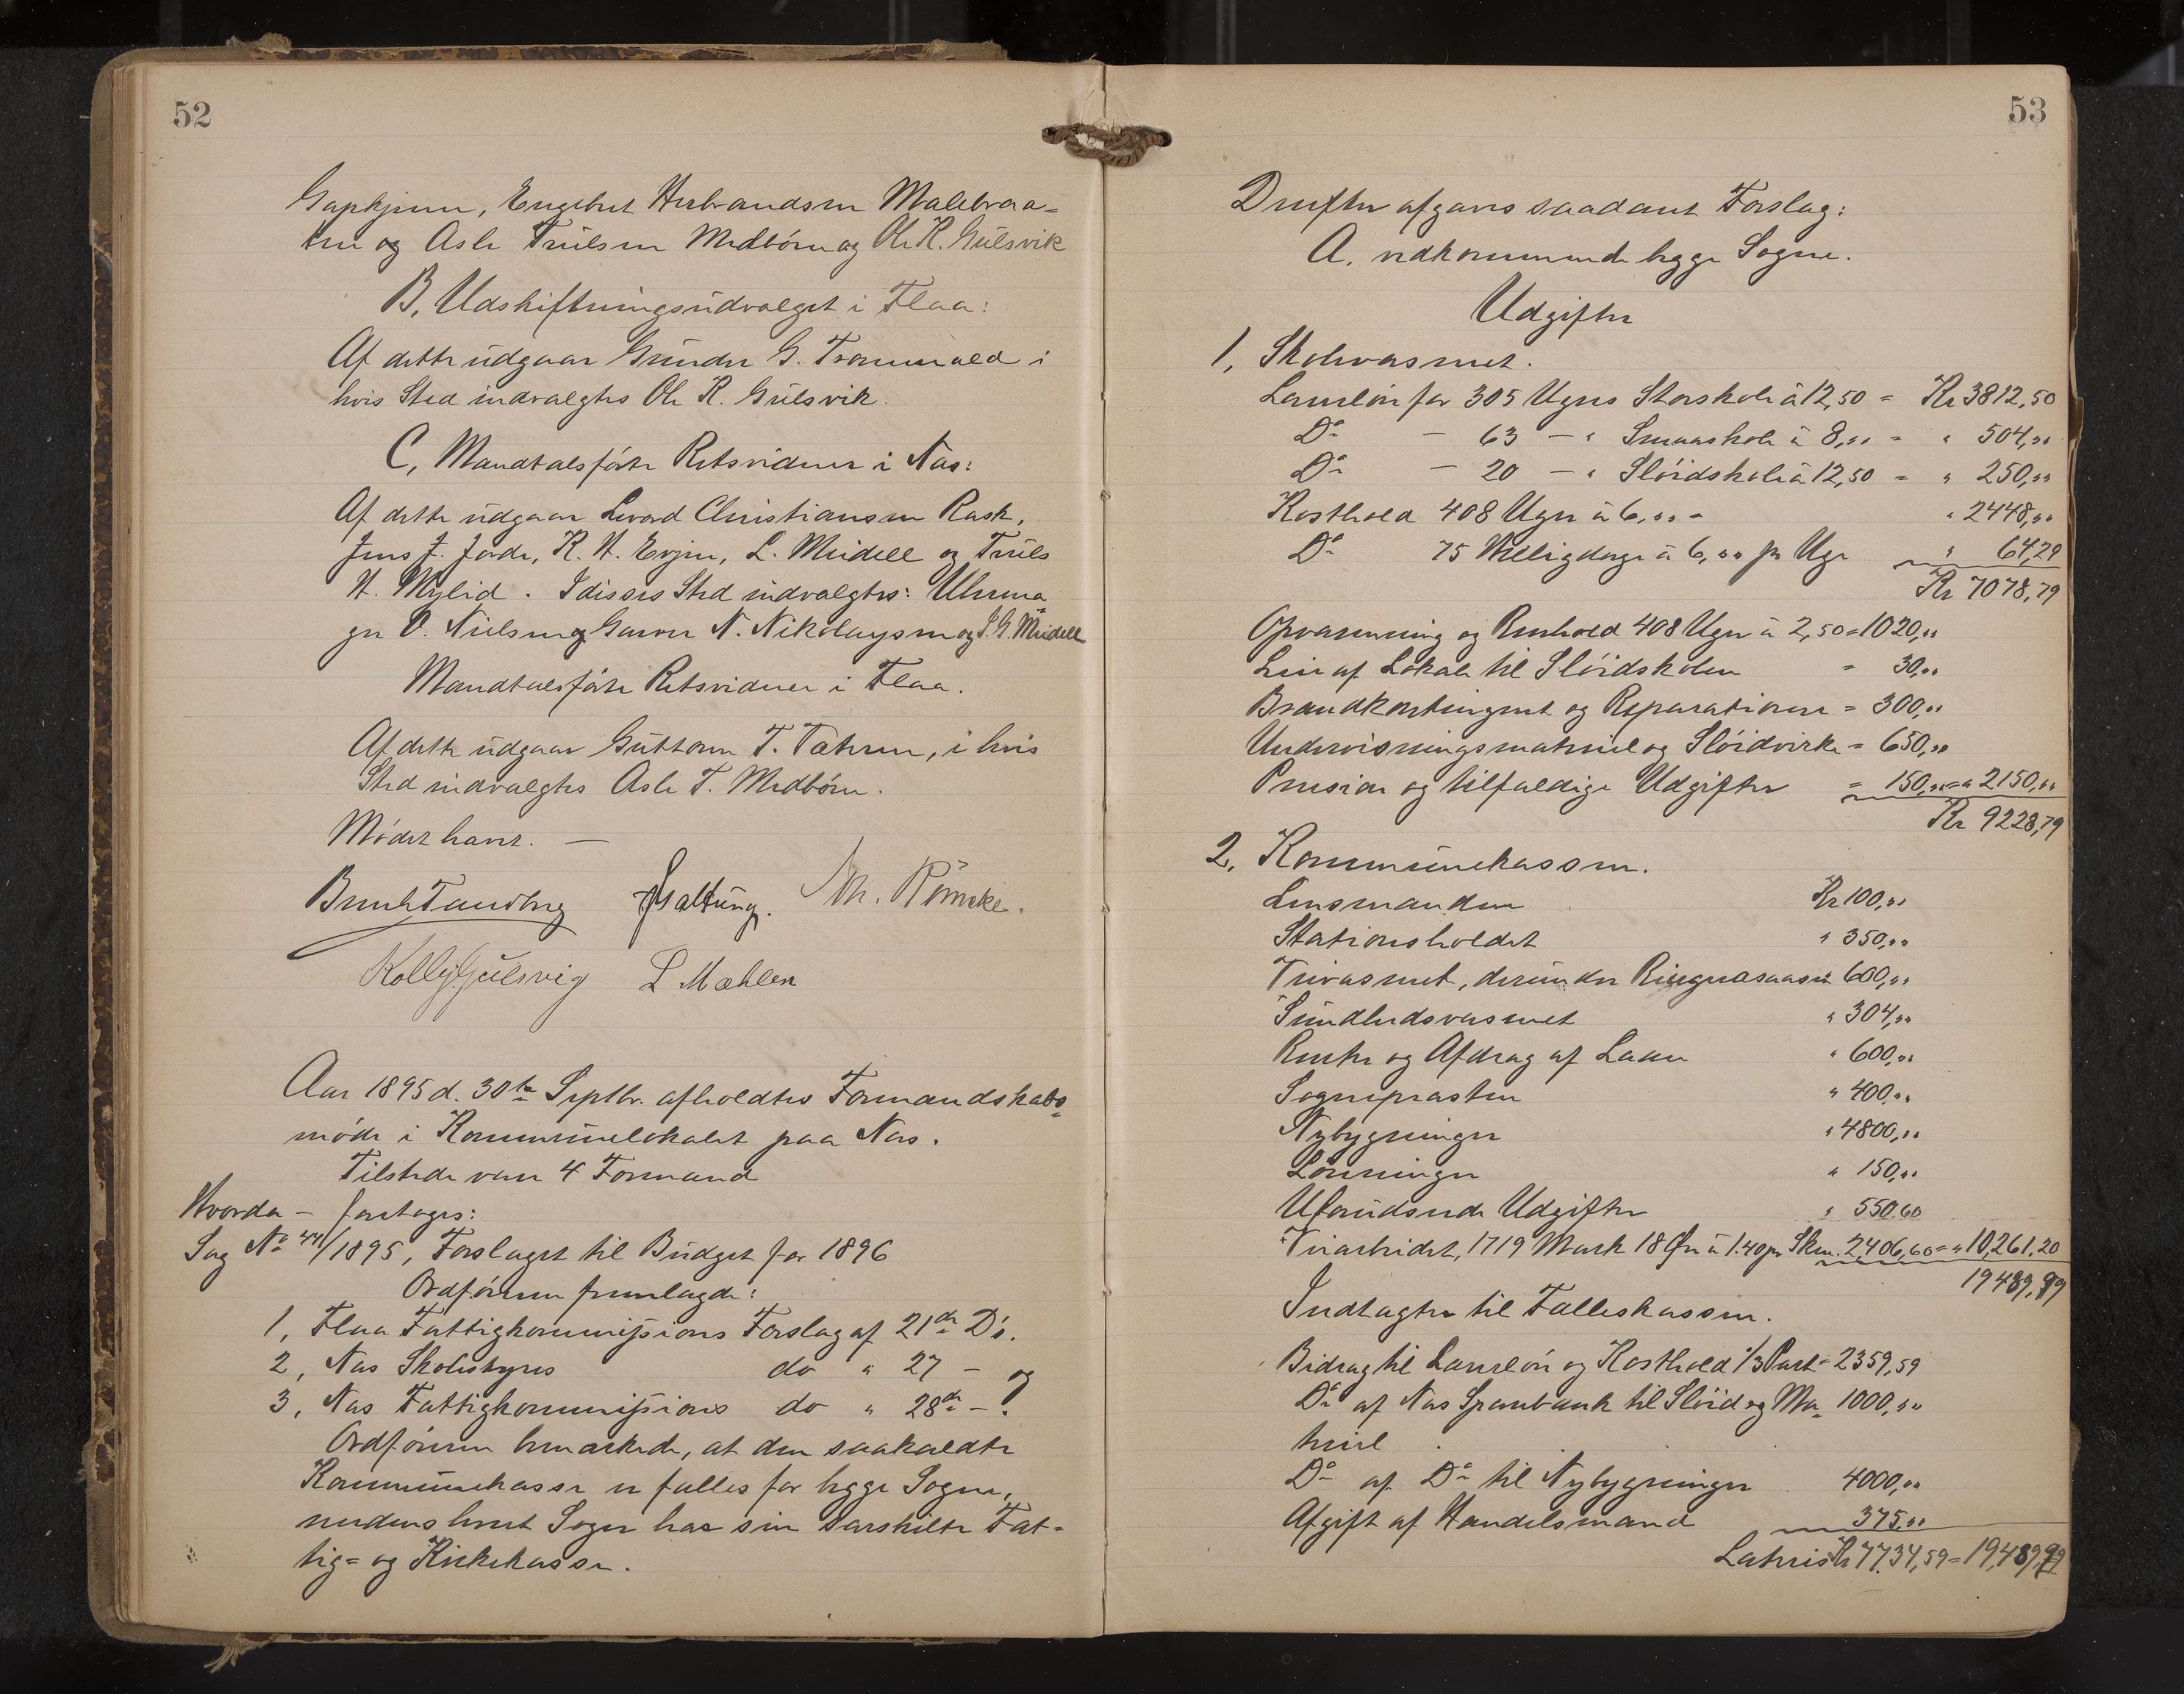 52
Gapkjønn, Engebret Herbrandsen Malebraa-
ten og Asle Trulsen Medbøen og Ole K. Gulsvik
B, Udskiftningsudvalget i Flaa:
Af dette udgaar Gunder G. Trommald i
hvis Sted indvalgtes Ole K. Gulsvik.
C, Mandtalsførte Retsvidner i Næs:
Af dette udgaar Levord Christiansen Rask,
Jens J. Jorde, K. H. Evjen, L. Meidell og Truls
H. Mylid. I disses Sted indvalgtes: Uhrma-
ger O. Nielsen og Garver N. Nikolaysen og J. G. Meidell
Mandtalsførte Retsvidner i Flaa.
Af dette udgaar Guttorm T. Tøhren, i hvis
Sted indvalgtes Asle T. Medbøen.
Mødet hævet. —
Bernh Tandberg JGaltung. Th. Römcke.
Kolbj. Gulsvig L. Mæhlen
Aar 1895 d. 30te Septbr. afholdtes Formandskabs-
møde i Kommunelokalet paa Næs.
Tilstede vare 4 Formænd
Hvorda — foretoges:
Sag No 44/1895, Forslaget til Budget for 1896
Ordføreren fremlagde:
1, Flaa Fattigkommissions Forslag af 21de Ds.
2, Næs Skolestyres do " 27 — og
3, Næs Fattigkommissions do " 28de — .
Ordføreren bemærkede, at den saakaldte
Kommunekasse er fælles for begge Sogne,
medens hvert Sogn har sin særskilte Fat-
tig= og Kirkekasse.
53
Derefter afgaves saadant Forslag:
A. vedkommende begge Sogne.
Udgifter
1, Skolevæsenet.
Lærerløn for 305 Ugers Storskole à 12,50 = Kr 3812,50
Do — 63 — " Smaaskole à 8,00 = " 504,00
Do — 20 — " Sløidskole à 12,50 = " 250,00
Kosthold 408 Uger à 6,00 = " 2448,00
Do 75 Helligdage à 6,00 pr Uge " 64,29
Kr 7078,79
Opvarmning og Renhold 408 Uger à 2,50 = 1020,00
Leie af Lokale til Sløidskolen = 30,00
Brandkontingent og Reparationer = 300,00
Undervisningsmateriel og Sløidvirke = 650,00
Pension og tilfældige Udgifter = 150,00 = " 2150,00
Kr 9228,79
2, Kommunekassen.
Lensmanden Kr 100,00
Stationsholdet " 350,00
Veivæsenet, derunder Ringnesaasen " 600,00
Sundhedsvæsenet " 304,00
Renter og Afdrag af Laan " 600,00
Sognepræsten " 400,00
Nybygninger " 4800,00
Lønninger " 150,00
Uforudseede Udgifter " 550.60
Veiarbeidet, 1719 Mark 18 Øre à 1.40 pr Skm. 2,406,60 = " 10,261.20
19489,99
Indtægter til Fælleskassen.
Bidrag til Lærerløn og Kosthold 1/3 Part = 2359,59
Do af Næs Sparebank til Sløid og Ma- 1000,00
teriel
Do af Do til Nybygninger 4000,00
Afgift af Handelsmænd 375,00
Lateris Kr 7734,59 = 19,489,99